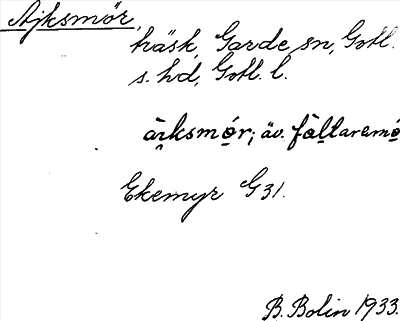 Ajksmör,
träsk, Garde sn, Gotl.
s. hd, Gotl. l.
ài̯ksmọ́r; äv. fàḷtaramọ
Ekemyr G 31.
B. Bolin 1933.